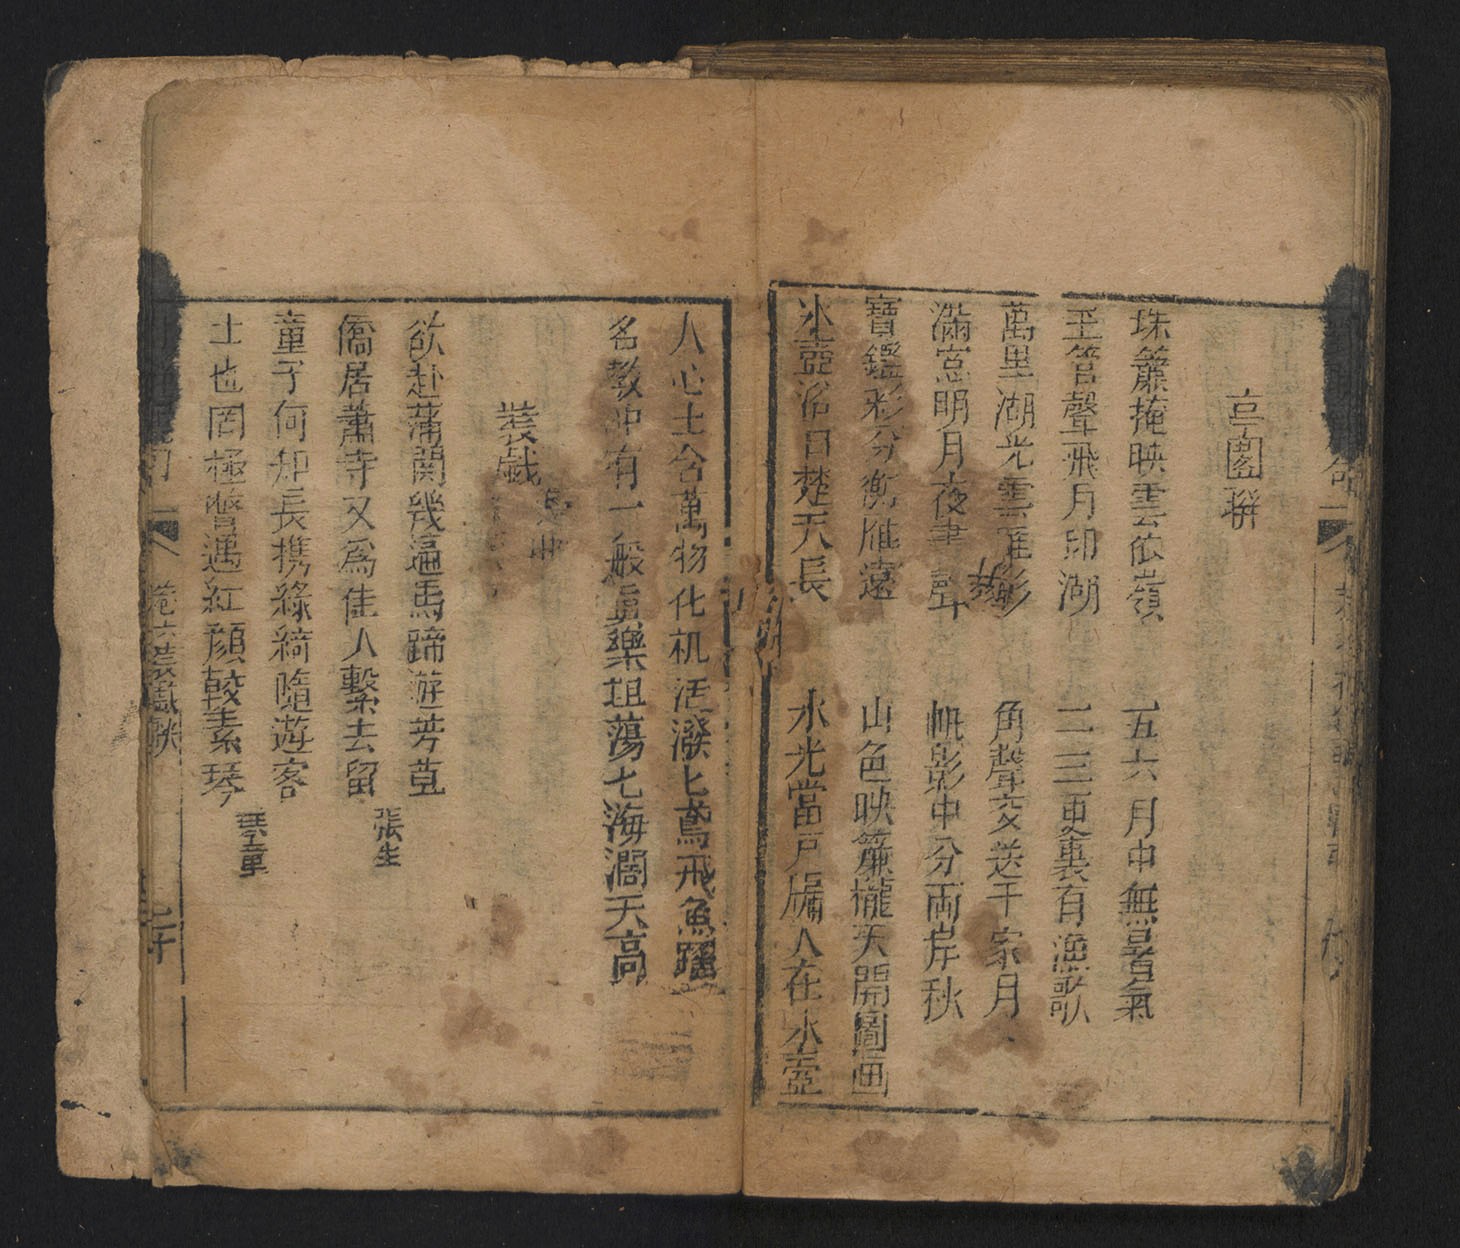 亭閣聯
珠簾掩映雲依嶺 五六月中無暑氣
玉笛聲飛月印湖 二三更裏有漁歌
萬里湖光雲雁影 角聲交送千家月
滿窓明月夜書聲 帆影中分両岸秋
寶鑑彩分衡雁遠 山色映簾櫳天開圖画
氷壺浴日楚天長 水光當戶牖人在氷壺
人心上含萬物化机活潑匕鳶飛魚躍
名教中有一般眞樂坦蕩七海濶天高
装戯
欲赴蒲関幾遍馬蹄遊芳草
僑居蕭寺又為佳人繫去留 張生
童子何知長携綠綺隨遊客
士也罔極瞥遇紅顔較素琴 琴童
卷六装戯联
七十